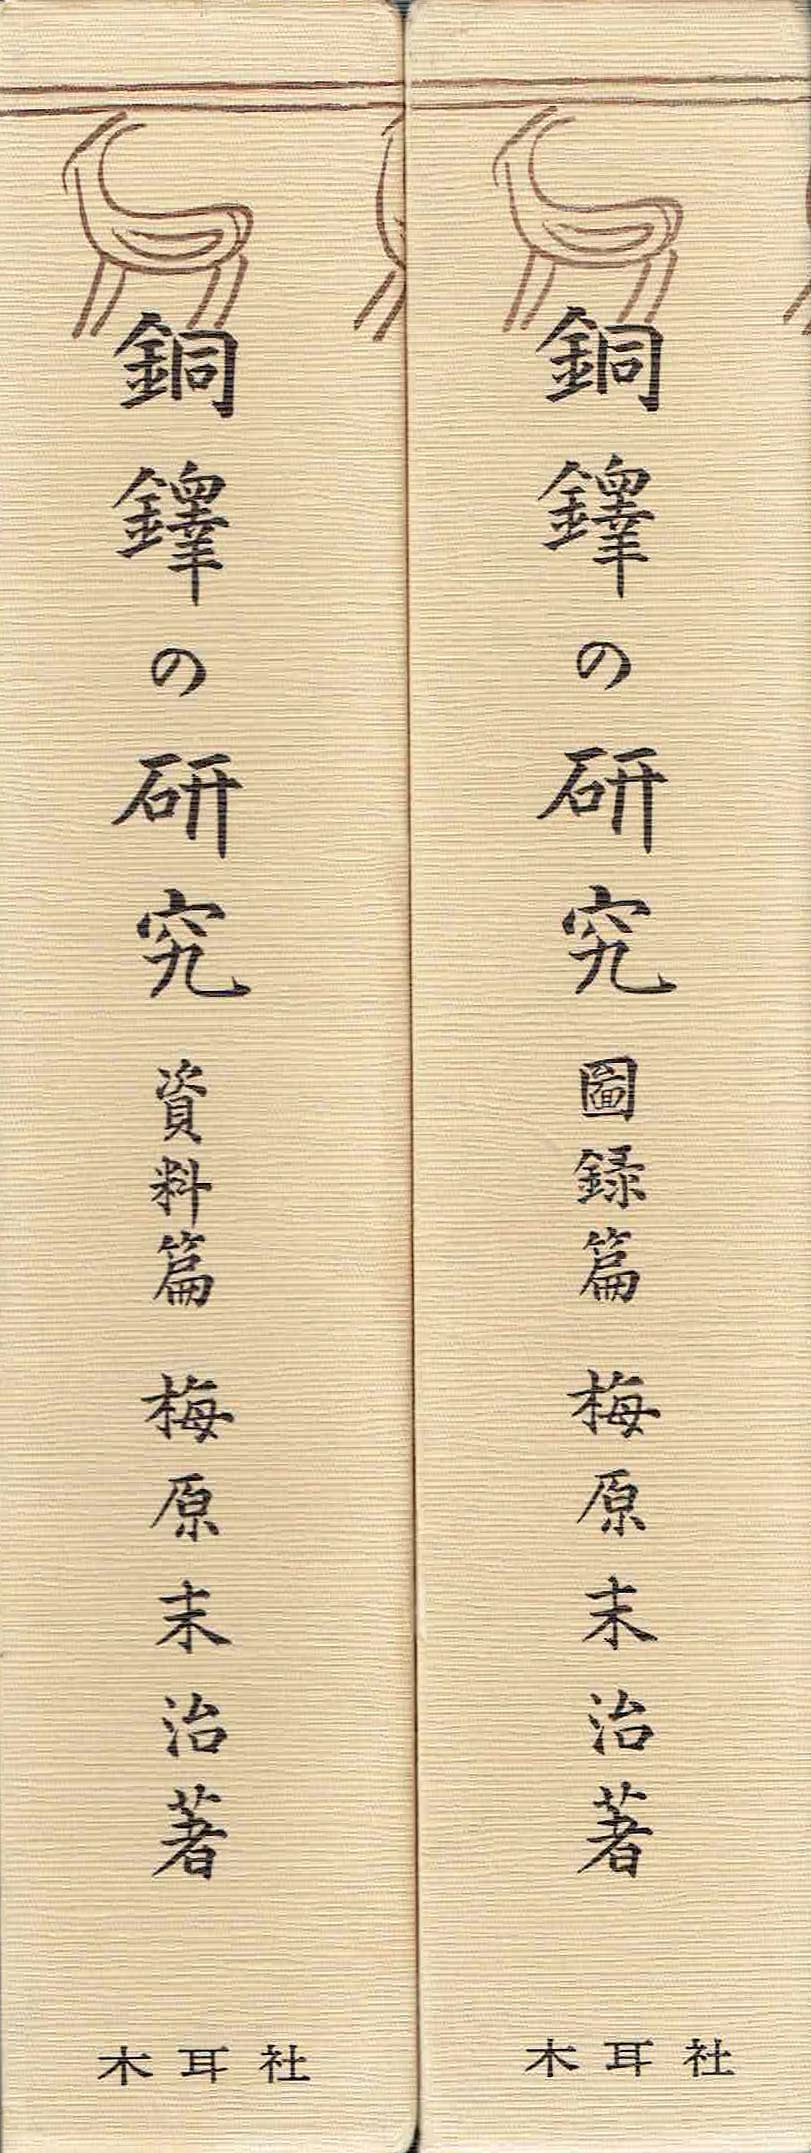 銅鐸の研究 圖録篇 梅原末治著
木耳社
銅鐸の研究 資料篇 梅原末治著
木耳社